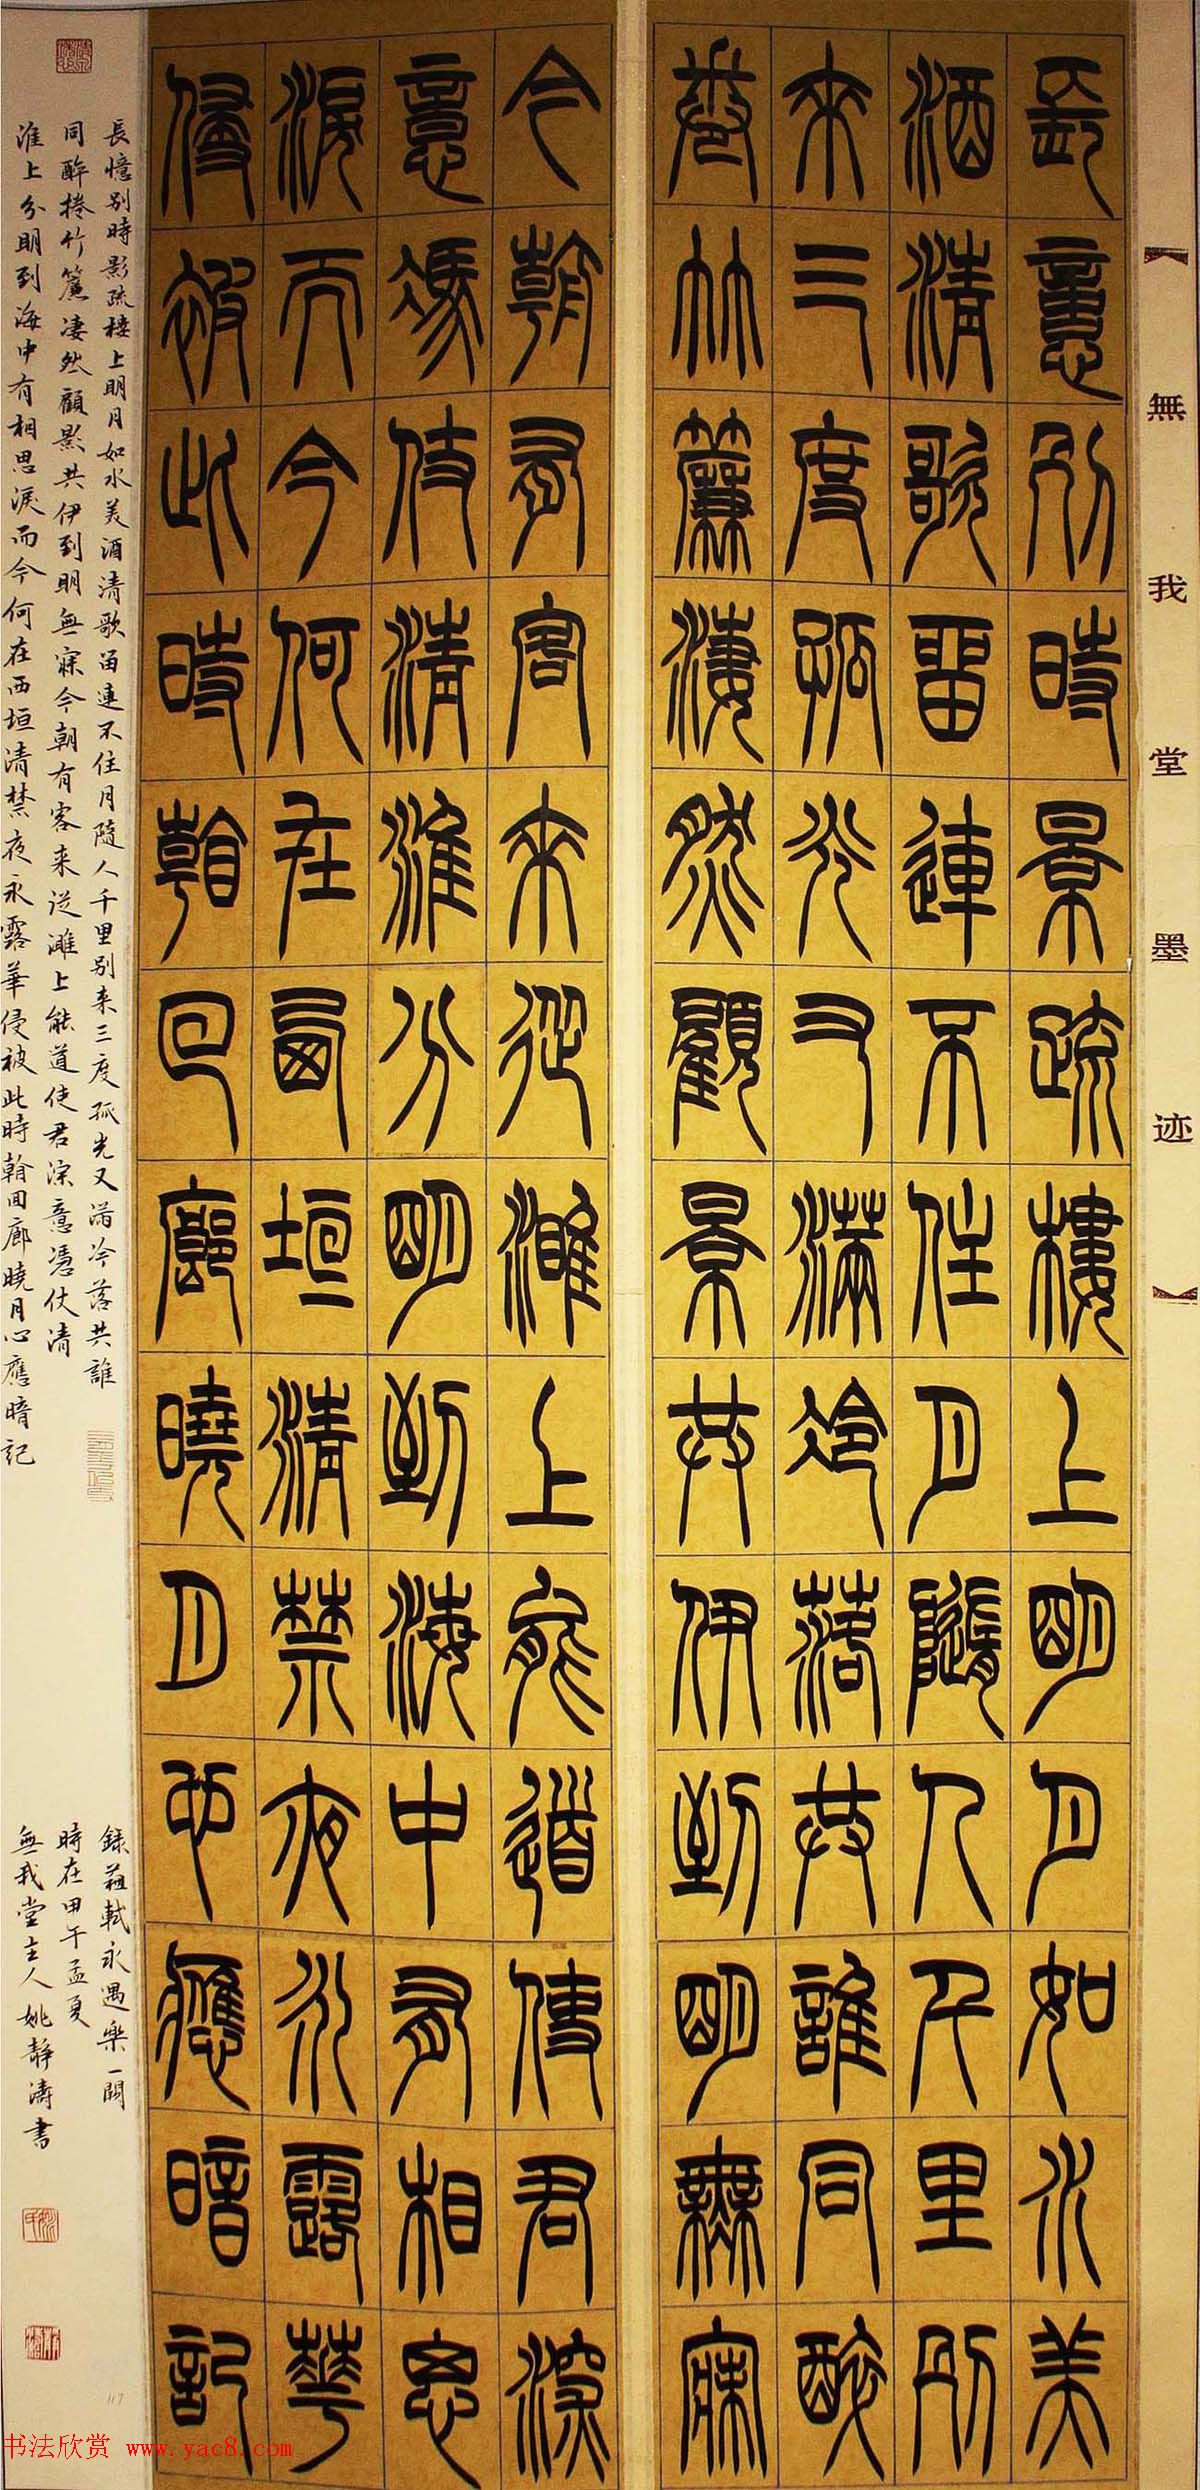 【無我堂墨迹】
長意別時景疏樓上明月如水美
酒清歌留連不住月隨人千里別
來三度孤光又滿冷落共誰同醉
卷竹簾淒然顧景共伊到明無寐
今朝有客來從濉上能道使君深
意馮仗清淮分明到海中有相思
淚而今何在西垣清禁夜永露華
侵被此時翰回廊曉月心應暗記
長憶別時影疏樓上明月如水美酒清歌留連不住月隨人千里別来三度孤光又滿冷落共誰
同醉捲竹簾淒然顧影共伊到明無寐今朝有客来從濉上能道使君深意憑仗清
淮上分明到海中有相思淚而今何在西垣清禁夜永露華侵被此時翰回廊曉月心應暗記
録蘇軾永遇樂一闋
時在甲午孟夏
無我堂主人姚靜濤書
117
书法欣赏 www.yac8.com